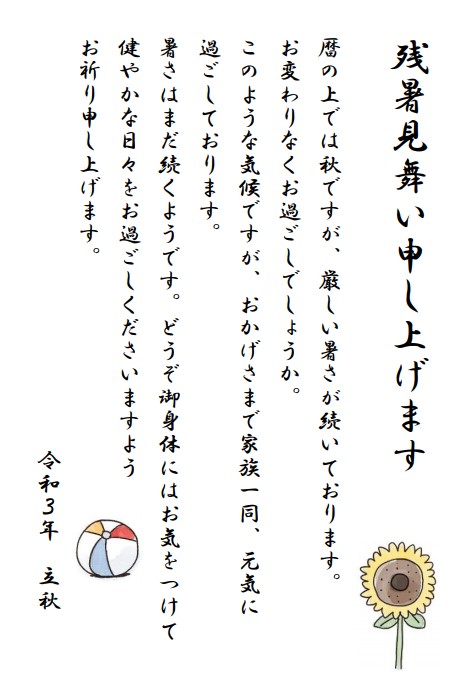 残暑見舞い申し上げます
暦の上では秋ですが、厳しい暑さが続いております。
お変わりなくお過ごしでしょうか。
このような気候ですが、おかげさまで家族一同、元気に
過ごしております。
暑さはまだ続くようです。どうぞ御身体にはお気をつけて
健やかな日々をお過ごしくださいますよう
お祈り申し上げます。
令和3年 立秋